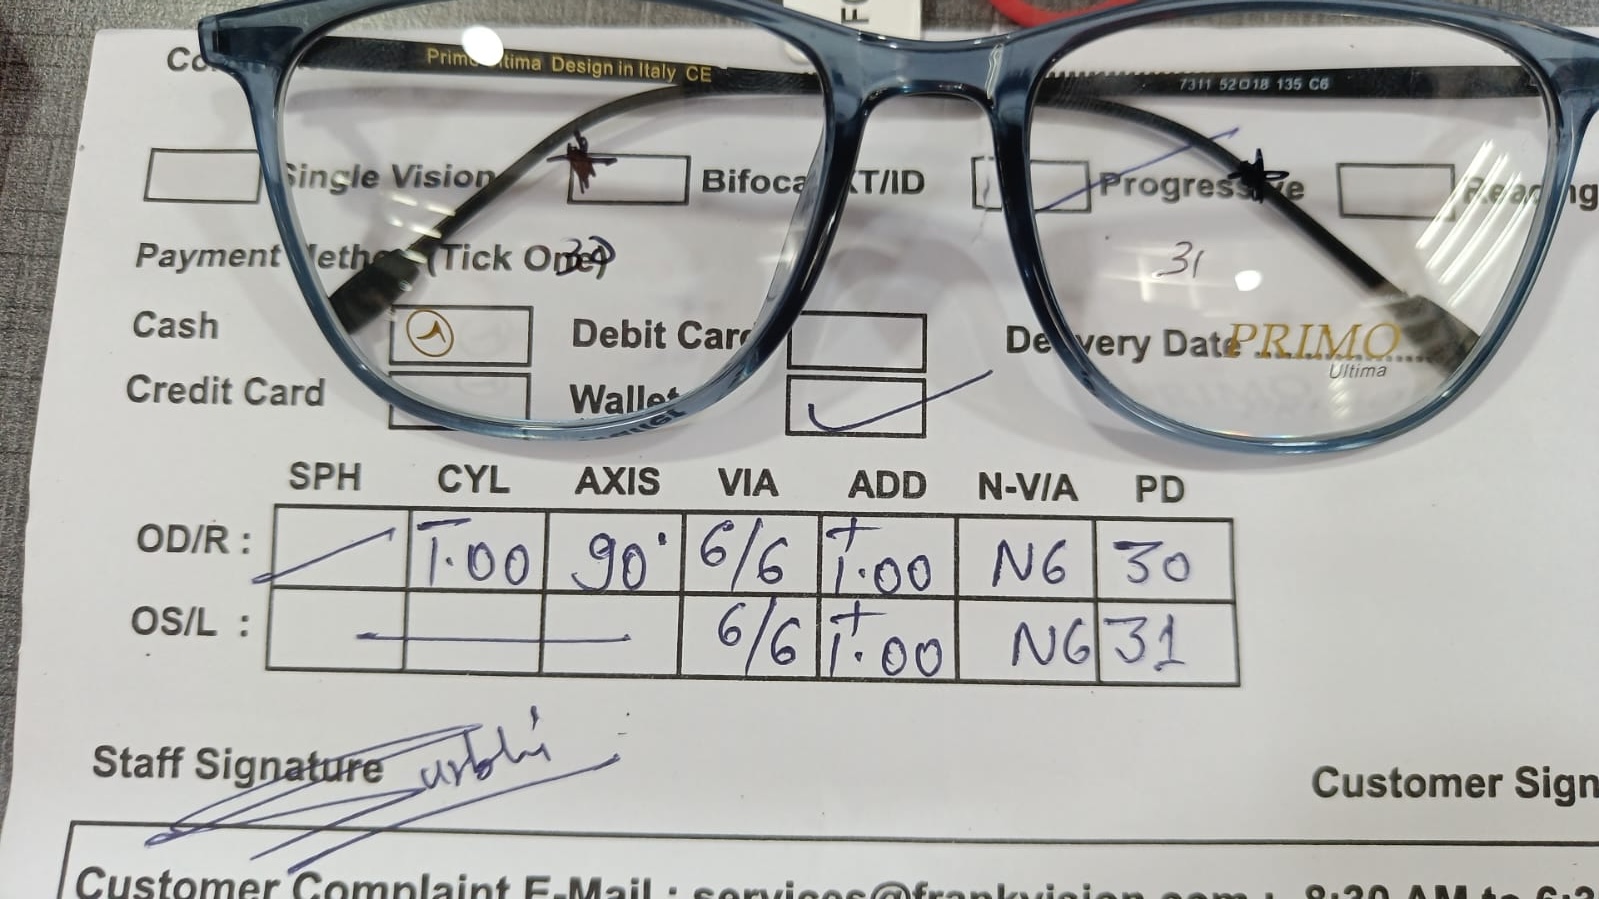 FO
Primo Ultima Design in Italy CE
7311 52□18 135 C6
Single Vision Bifocal KT/ID Progressive Reading
Payment Method (Tick One)
30 31
Cash Debit Card Delivery Date ..............
PRIMO
Ultima
Credit Card Wallet
SPH CYL AXIS VIA ADD N-V/A PD
OD/R : -1.00 90° 6/6 +1.00 N6 30
OS/L : 6/6 +1.00 N6 31
Staff Signature Surbhi
Customer Sign
Customer Complaint E-Mail : services@frankvision.com : 8:30 AM to 6:3